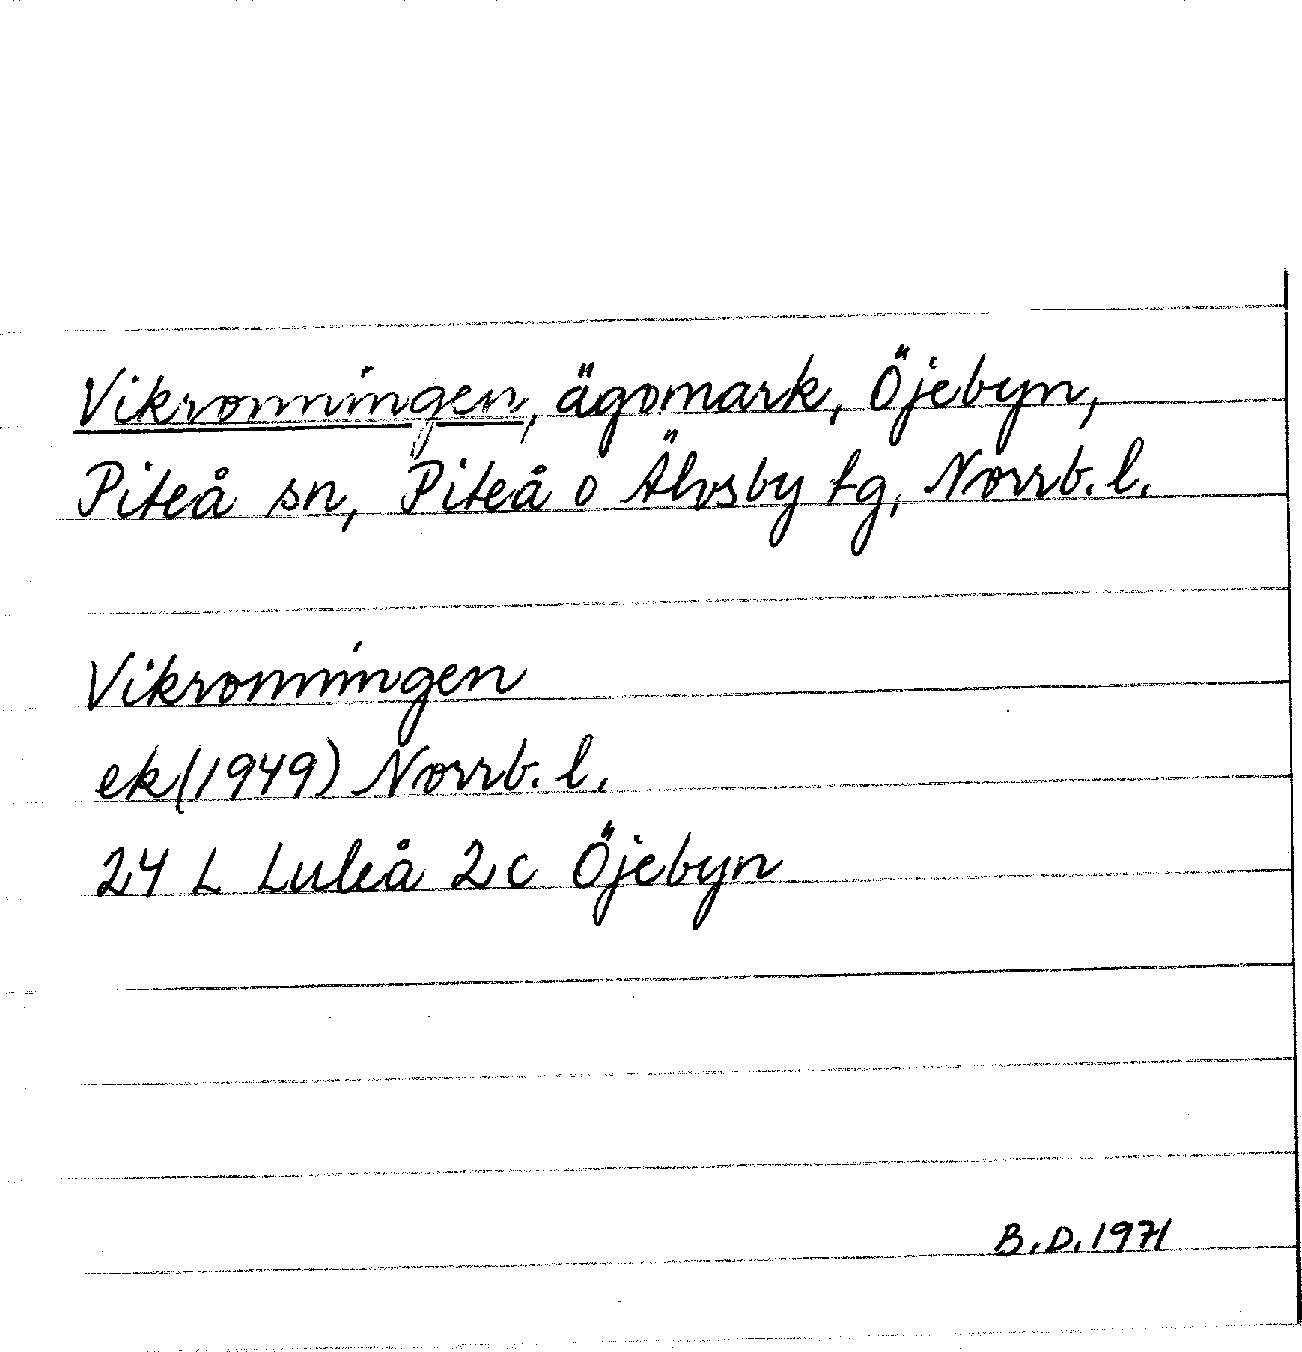 Vikronningen, ägomark, Öjebyn,
Piteå sn, Piteå o Älvsby tg, Norrb. l.
Vikronningen
ek (1949) Norrb. l.
24 L Luleå 2 c Öjebyn
B.D. 1971